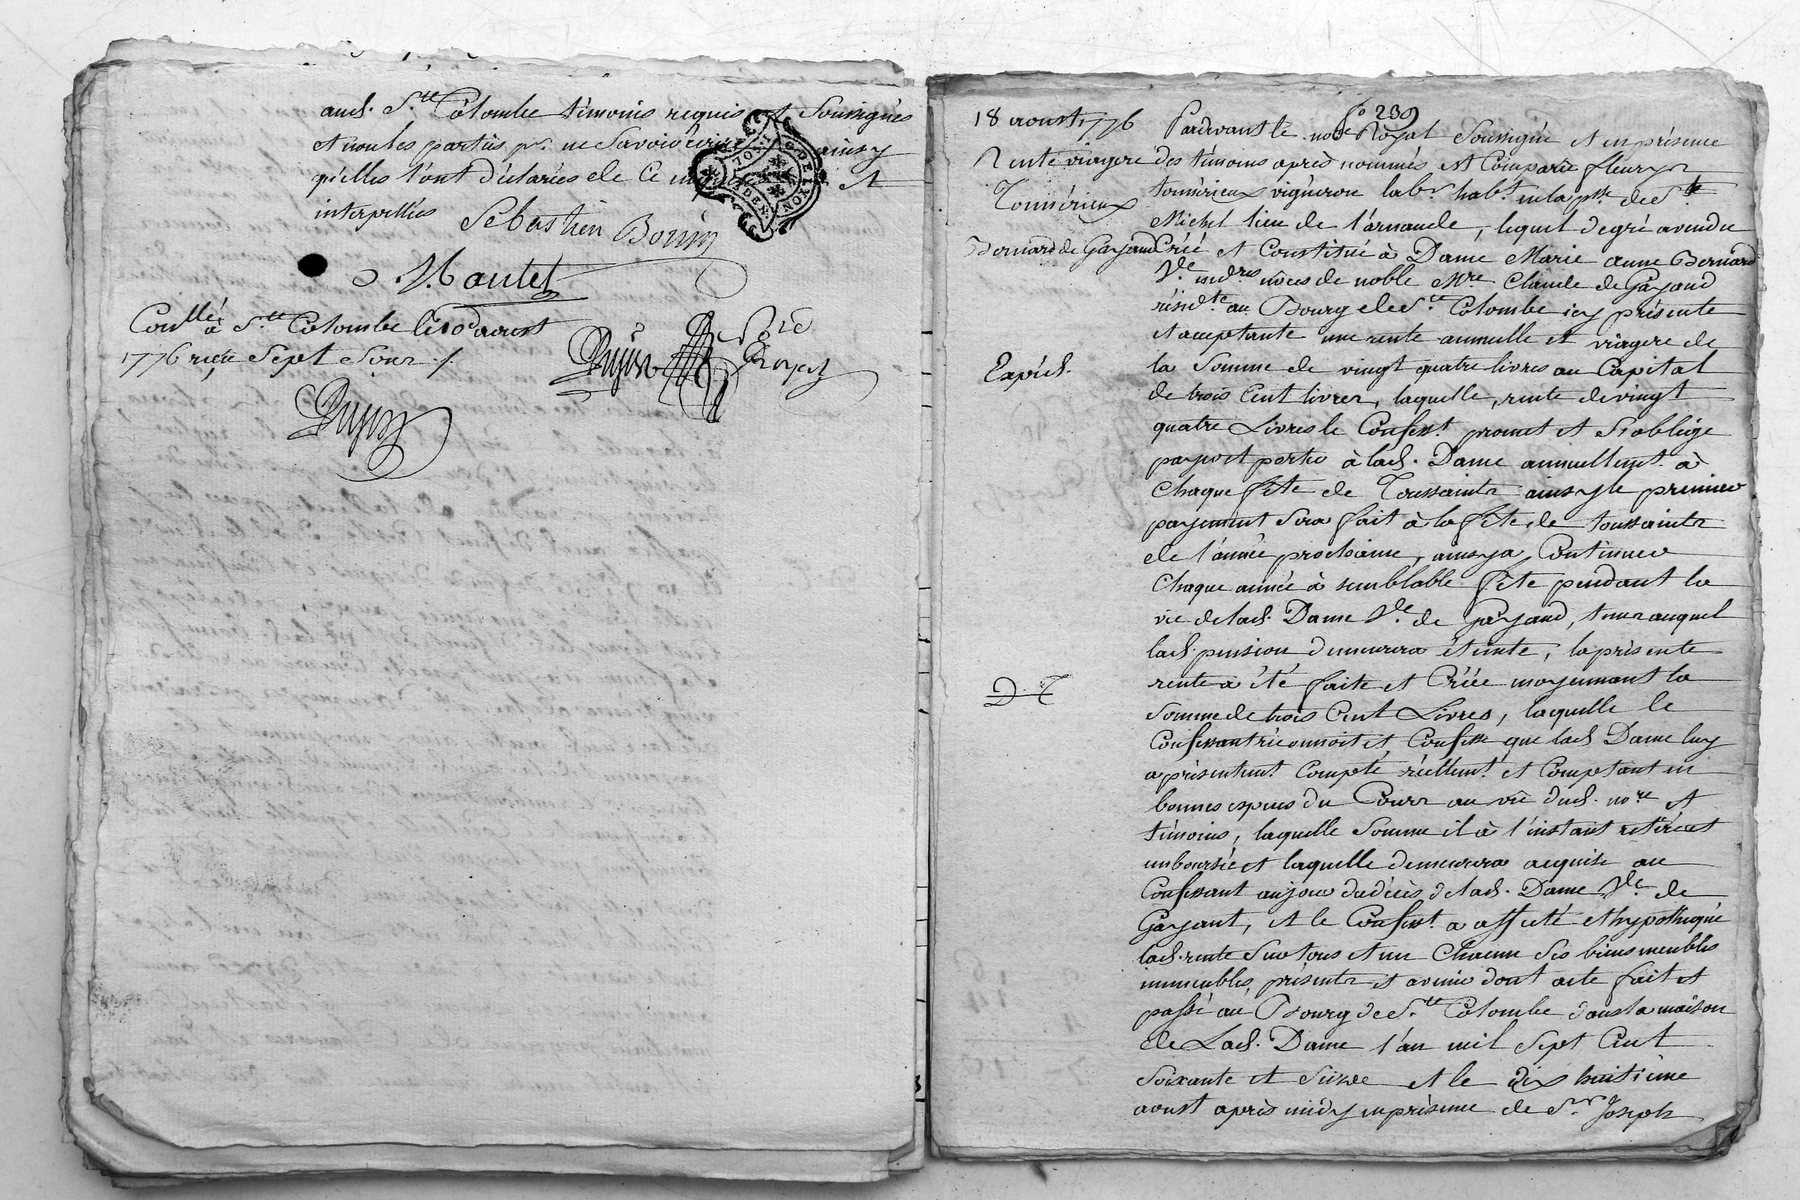 aud. S.te Colombe témoins requis et Soussignés
et non les parties pr. ne Savoir écrire ainsy
qu'elles l'ont déclarées de ce et
interpellées
Sebastien Bonin
Mantel
Con.llé à S.te Colombe le 10 d'aoust
1776 reçu Sept Sour ./.
f.o 239
18 aoust 1776
Pardvant le no.re Royal Soussigné et en présence
Rente viagere
des témoins après nommés est Comparu fleury
Tomérieux
tomérieux vigneron lab.r hab.t en la p.sse de S.t
Michel lieu de l'arnaude, lequel de gré a vendu
Bernard de Gayand
Créé et Constitué à Dame Marie anne Bernard
V.e noces de noble M.re Claude de Gayand
résid.te au Bourg de S.te Colombe icy présente
et acceptante une rente annuelle et viagere de
Expéd.
la Somme de vingt quatre livres au Capital
de trois Cent livres, laquelle rente de vingt
quatre Livres le Confess.t promet et S'oblige
payer et porter à lad. Dame annuellem.t à
Chaque fête de Toussaints ainsy le premier
payement Sera fait à la fête de toussaints
de l'année prochaine, ainsy à Continuer
Chaque année à semblable fête pendant la
vie de lad. Dame V.e de Gayand, tems auquel
lad. pension demeurera éteinte, la présente
D. T
rente a été faite et Créée moyennant la
Somme de trois Cent Livres, laquelle le
Confessant reconnoit et Confesse que lad Dame luy
a présentem.t Compté réellem.t et Comptant en
bonnes especes du Cours au vû dud. no.re et
témoins, laquelle Somme il à l'instant retirée et
emboursée et laquelle demeurera acquise au
Confessant au jour du décès de lad. Dame V.e de
Gayant, et le Confess.t a affecté et hypothéqué
lad. rente Sur tous et un Chacun Ses biens meubles
immeubles, présents et avenir dont acte fait et
passé au Bourg de S.te Colombe dans la maison
de Lad. Dame l'an mil Sept Cent
Soixante et Seize et le dix huitième
aoust après midy en présence de S.r Joseph